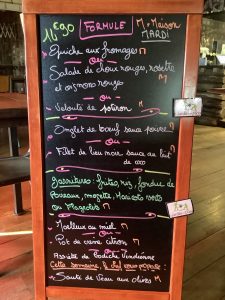 16€90 FORMULE M = Maison
MARDI
Quiche aux fromages M
ou
Salade de choux rouges, rosette M
et oignons rouges
ou
Velouté de potiron M
Onglet de bœuf sauce poivre M
ou
Filet de lieu noir sauce au lait M
de coco
Garnitures : frites, riz, fondue de
Poireaux, Haricots verts
ou
Moelleux au miel M
ou
Pot de crème citron M
ou
Assiette de Vendéenne
Cette semaine, le chef vous propose :
Sauté de Veau aux olives M